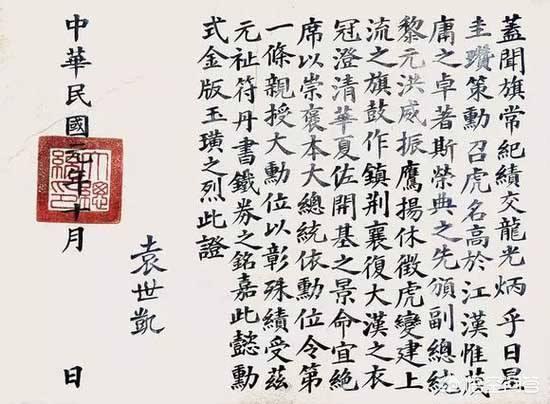 蓋聞旗常紀績交龍光炳乎日星
圭瓚策勳召虎名高於江漢惟茂
庸之卓著斯榮典之先頒副總統
黎元洪威振鷹揚休徵虎變建上
流之旗鼓作鎮荆襄復大漢之衣
冠澄清華夏佐開基之景命宜絶
席以崇褒本大總統依勳位令第
一條親授大勳位以彰殊績受茲
元祉符丹書鐵券之銘嘉此懿勳
式金版玉璜之烈此證
袁世凱
中華民國元年十月 日
大總統印
悟空问答